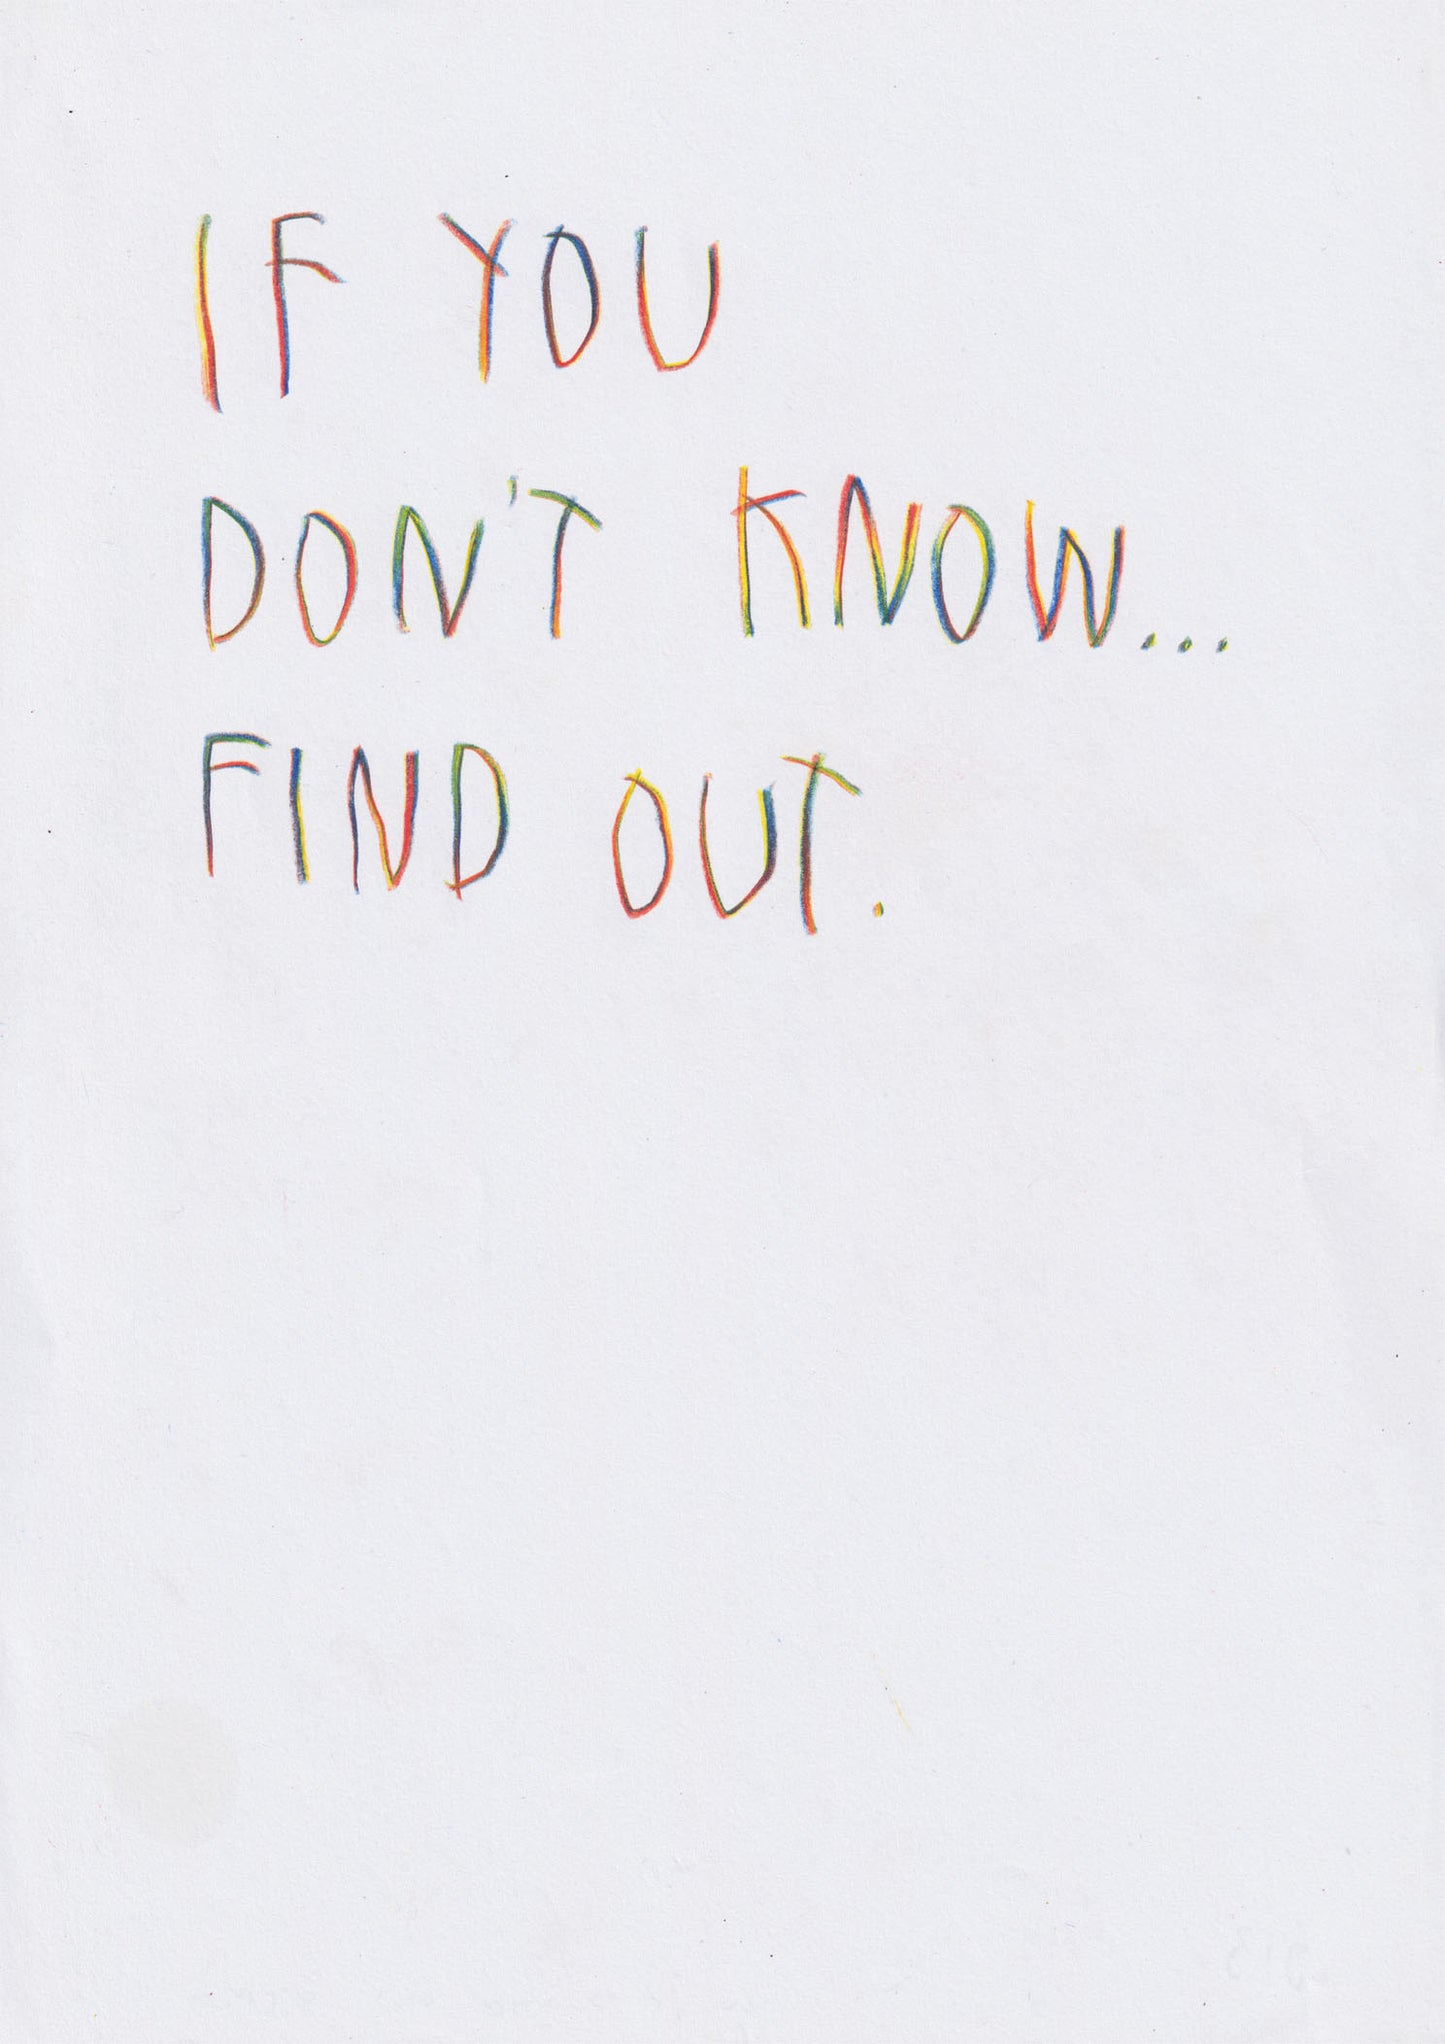 IF YOU
DON'T KNOW...
FIND OUT.